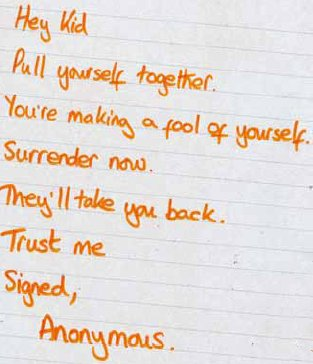 Hey Kid
Pull yourself together.
You're making a fool of yourself.
Surrender now.
They'll take you back.
Trust me
Signed,
Anonymous.